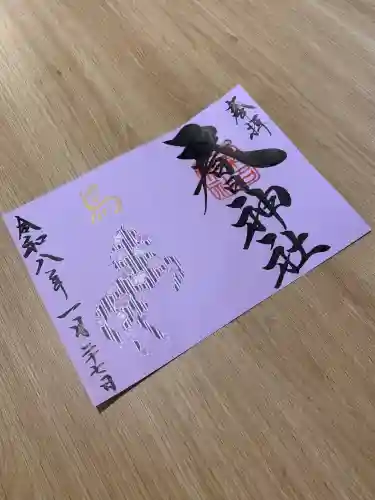 奉拝
春日神社
馬
令和八年一月二十七日